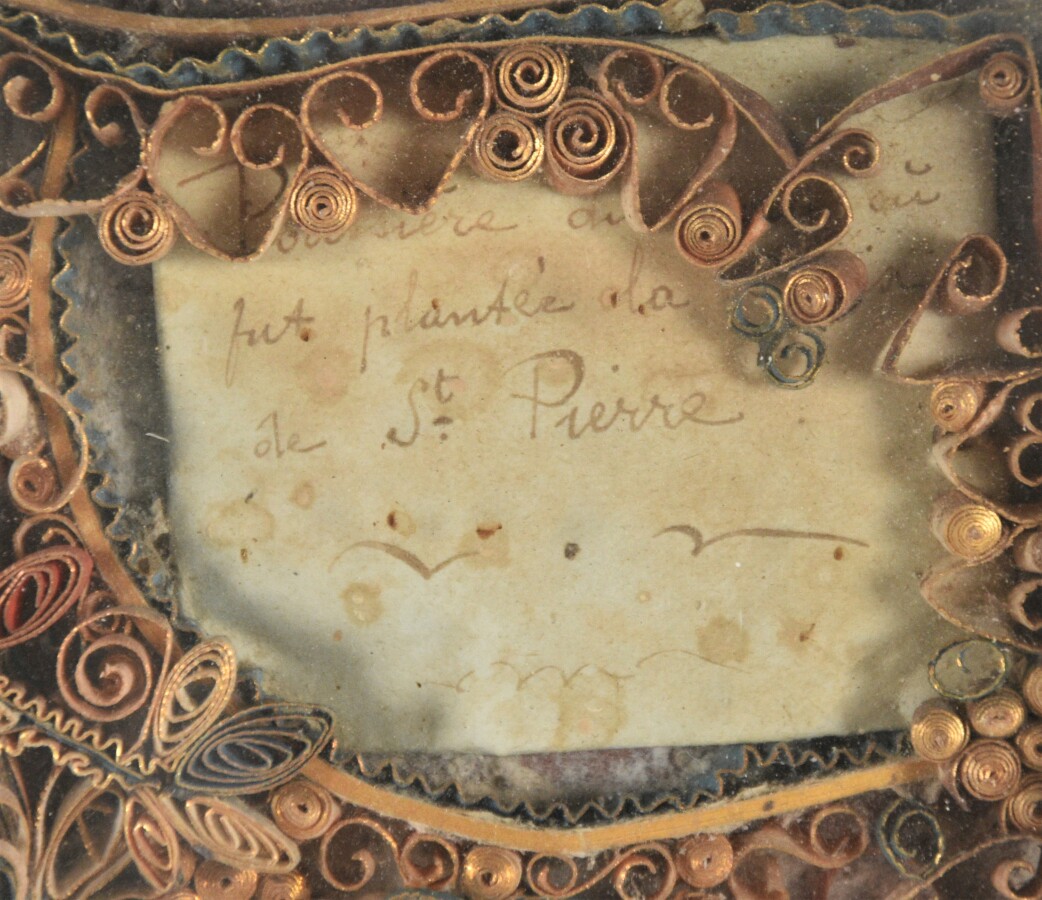 Poussière du
fut plantée la
de St. Pierre